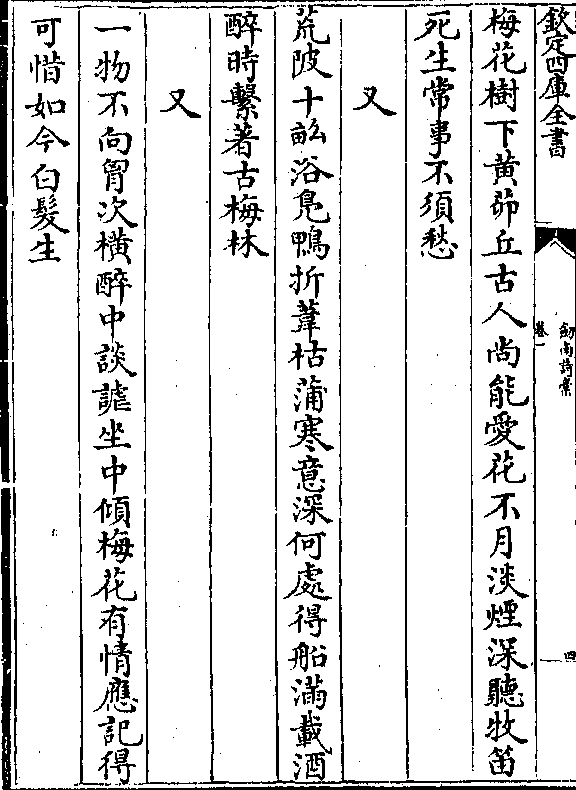 欽定四庫全書
劒南詩稾
卷一
四
梅花樹下黄茆丘古人尚能愛花不月淡煙深聽牧笛
死生常事不須愁
又
荒陂十畝浴鳬鴨折葦枯蒲寒意深何處得船滿載酒
醉時繫著古梅林
又
一物不向胷次横醉中談謔坐中傾梅花有情應記得
可惜如今白髮生